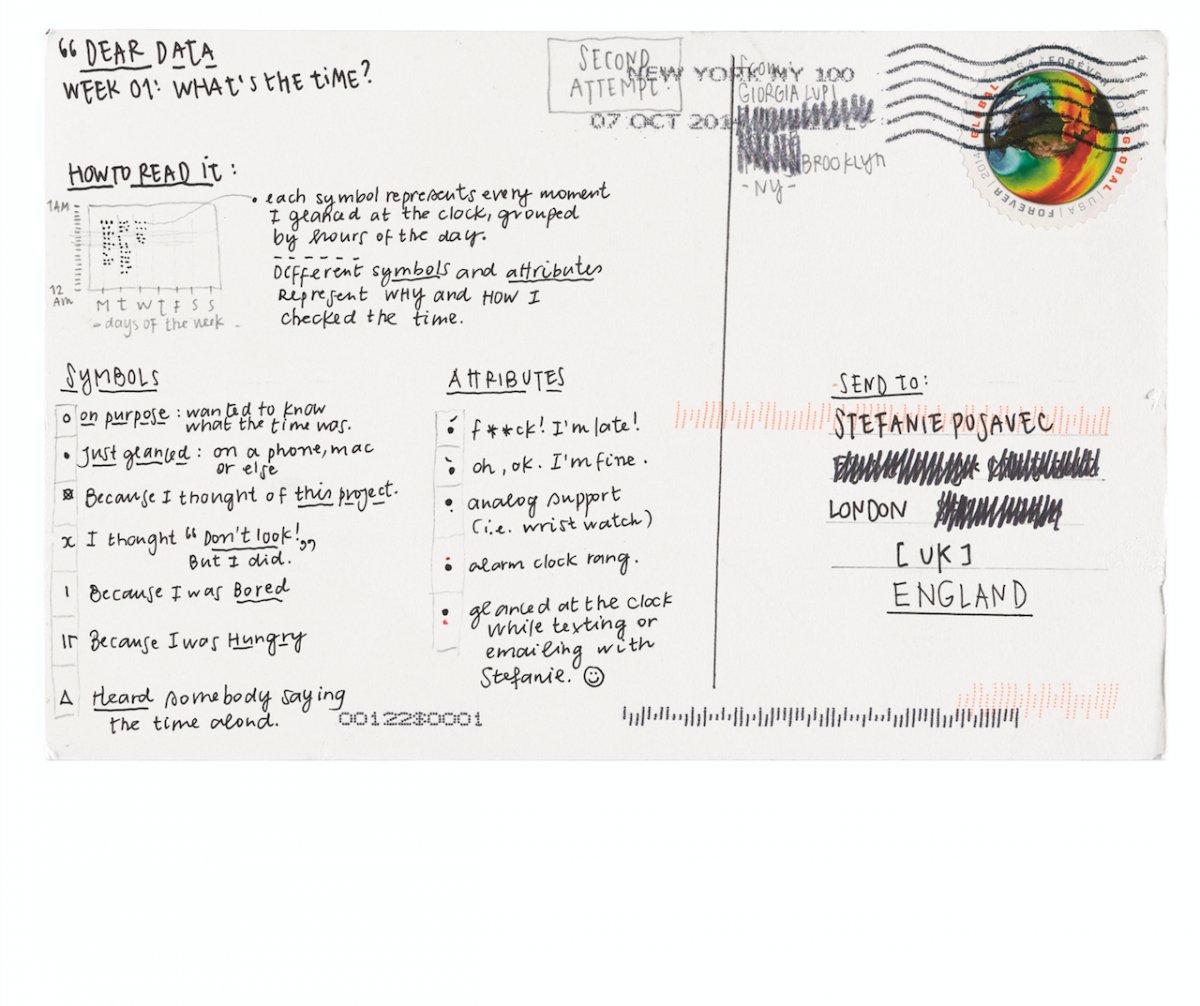 “ DEAR DATA
WEEK 01: WHAT'S THE TIME?
SECOND
ATTEMPT!
NEW YORK NY 100
07 OCT 201
From:
GIORGIA LUPI
BROOKLYN
- NY -
GLOBAL | USA | FOREVER | 2014
GLOBAL | USA | FOREVER | 2014
HOW TO READ IT :
1AM
12
AM
M T W T F S S
- days of the week -
• each symbol represents every moment
I glanced at the clock, grouped
by hours of the day.
Different symbols and attributes
Represent WHY and HOW I
checked the time.
SYMBOLS
on purpose : wanted to know
what the time was.
Just glanced : on a phone, mac
or else
Because I thought of this project.
I thought “ Don't look! ”
But I did.
Because I was Bored
Because I was Hungry
Heard somebody saying
the time aloud.
ATTRIBUTES
f**ck! I'm late!
oh, ok. I'm fine.
analog support
(i.e. wrist watch)
alarm clock rang.
glanced at the clock
while texting or
emailing with
Stefanie. ☺
SEND TO:
STEFANIE POSAVEC
LONDON
[UK]
ENGLAND
00122$0001